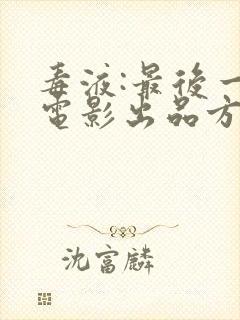 毒液:最後一
電影出品方
沈富麟